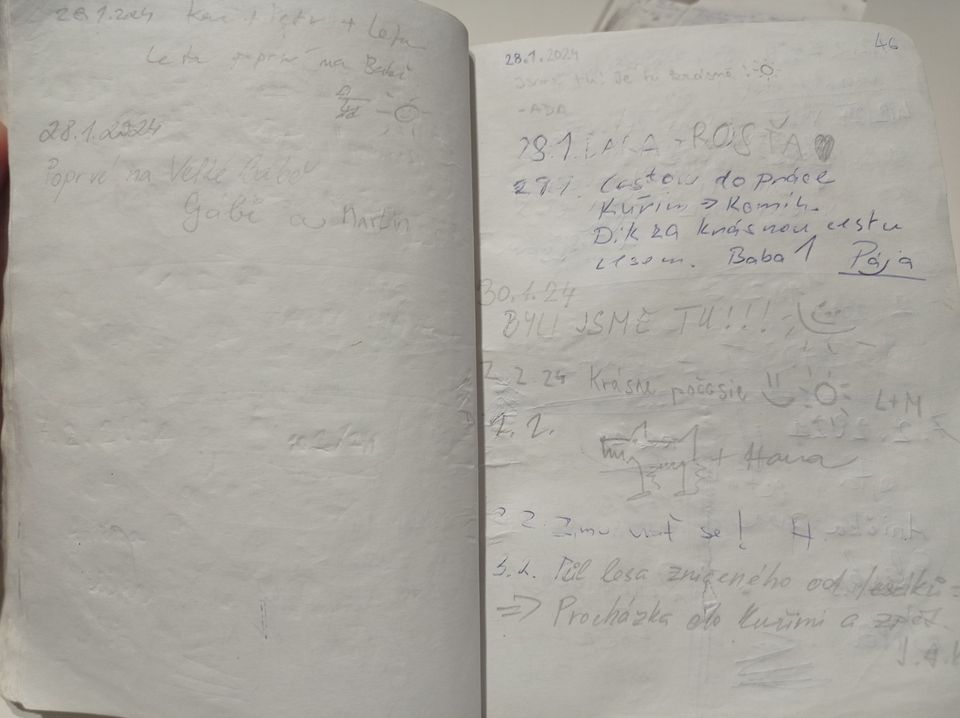 28.1.2024 Kač + Petr + Leta
Leta poprvé na Babě
28.1.2024
Poprvé na Velké Babě
Gabč a Martin
46
28.1.2024
Jsme tu! Je tu krásně!
-ADA
28.1. LAĽA - ROSŤA
29.1. Cestou do práce
Kuřim → Komín.
Dík za krásnou cestu
lesem. Baba 1 Pája
30.1.24
BYLI JSME TU!!!
2.2.24 Krásne počasie
L+M
2.2.
+ Hana
2.2. Zimo vrať se!
3.2. Půl lesa zničeného od
⇒ Procházka do Kuřimi a zpět.